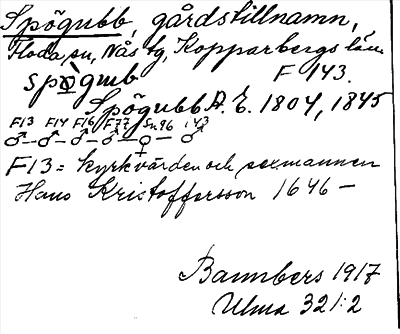 Spögubb, gårdstillnamn,
Floda sn, Nås tg, Kopparbergs län
spògub F 143.
Spögubb A. E. 1804, 1845
F13 F14 F16 F77 Sn96 143
♂ – ♂ – ♂ – ♂ – ♀ – ♂
F13 = kyrkvärden och sexmannen
Hans Kristoffersson 1646 –
Bannbers 1917
Ulma 321:2